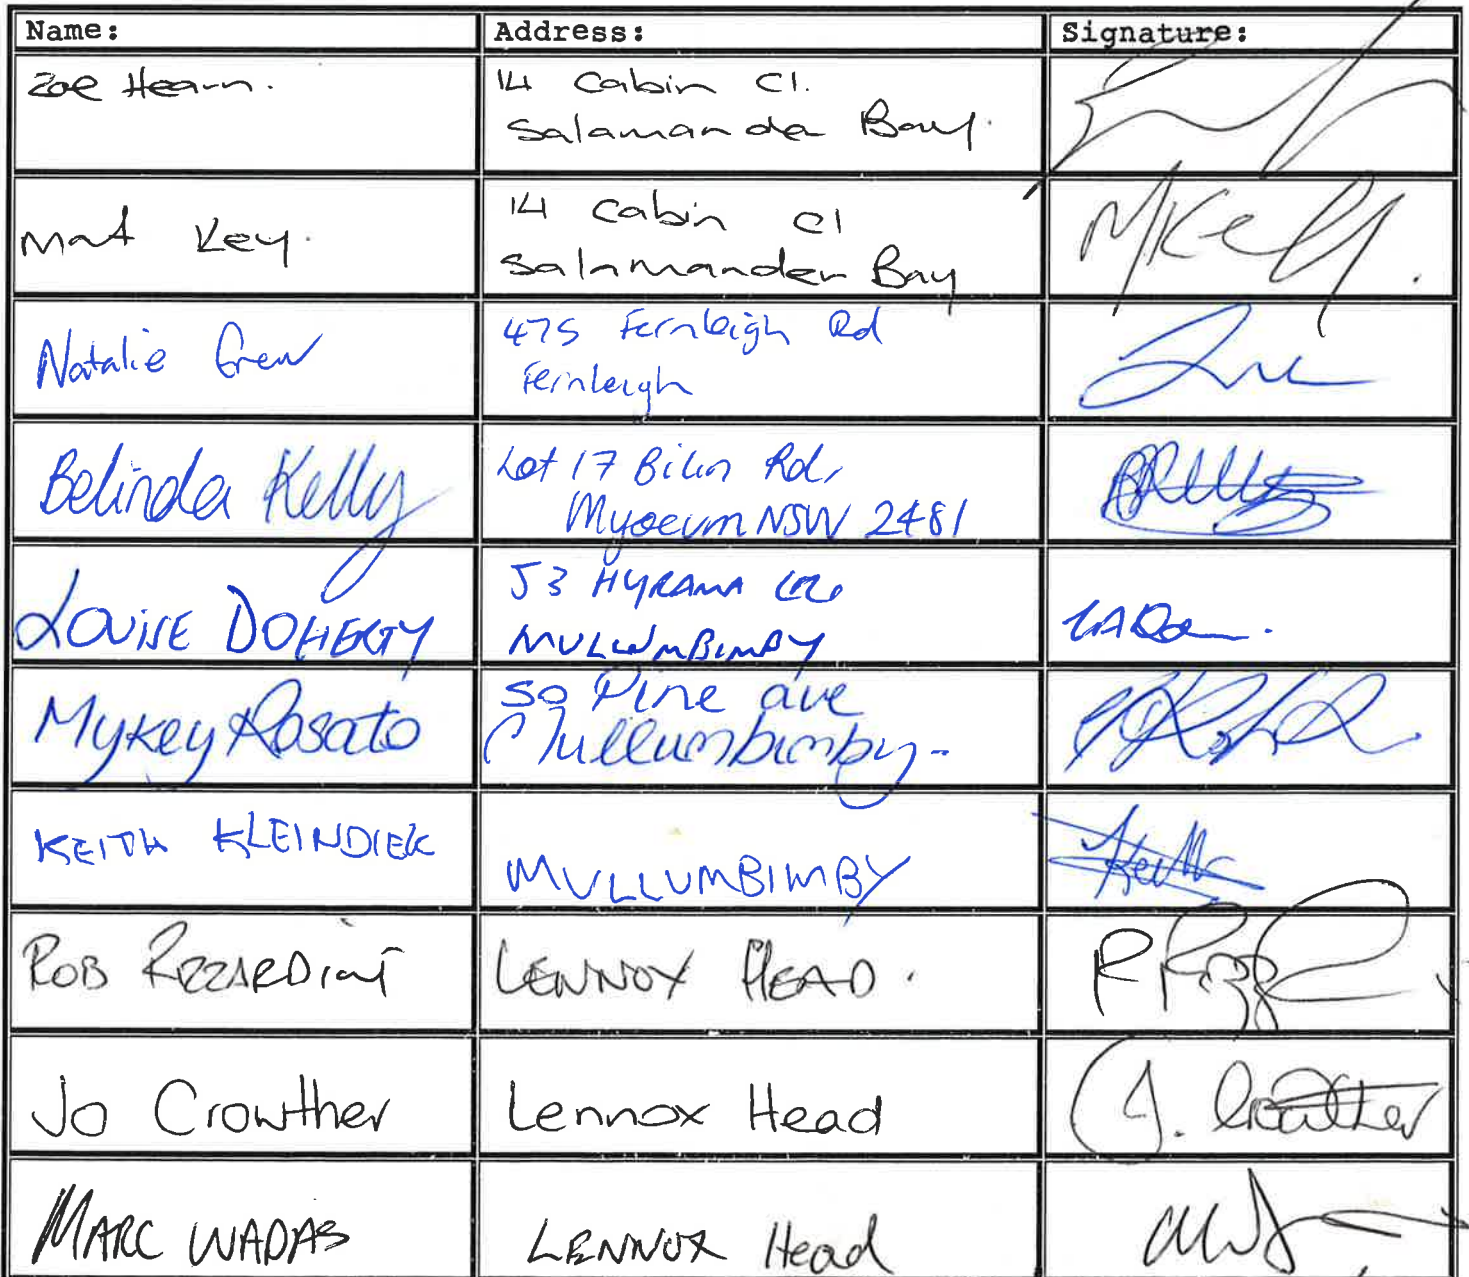 Name: Address: Signature:
Zoe Hearn. 14 Cabin Cl.
Salamander Bay.
Mat Key. 14 Cabin Cl
Salamander Bay MKey.
Natalie Grew 475 Fernleigh Rd
Fernleigh
Belinda Kelly Lot 17 Bilin Rd,
Myocum NSW 2481 BKelly
LOUISE DOHERTY 53 HYRAMA
MULLUMBIMBY
Mykey Rosato 50 Pine ave
Mullumbimby-
KEITH KLEINDIEK MULLUMBIMBY Keith
ROB RIZZARDINI LENNOX HEAD.
Jo Crowther Lennox Head J. Crowther
MARC WADAS LENNOX Head